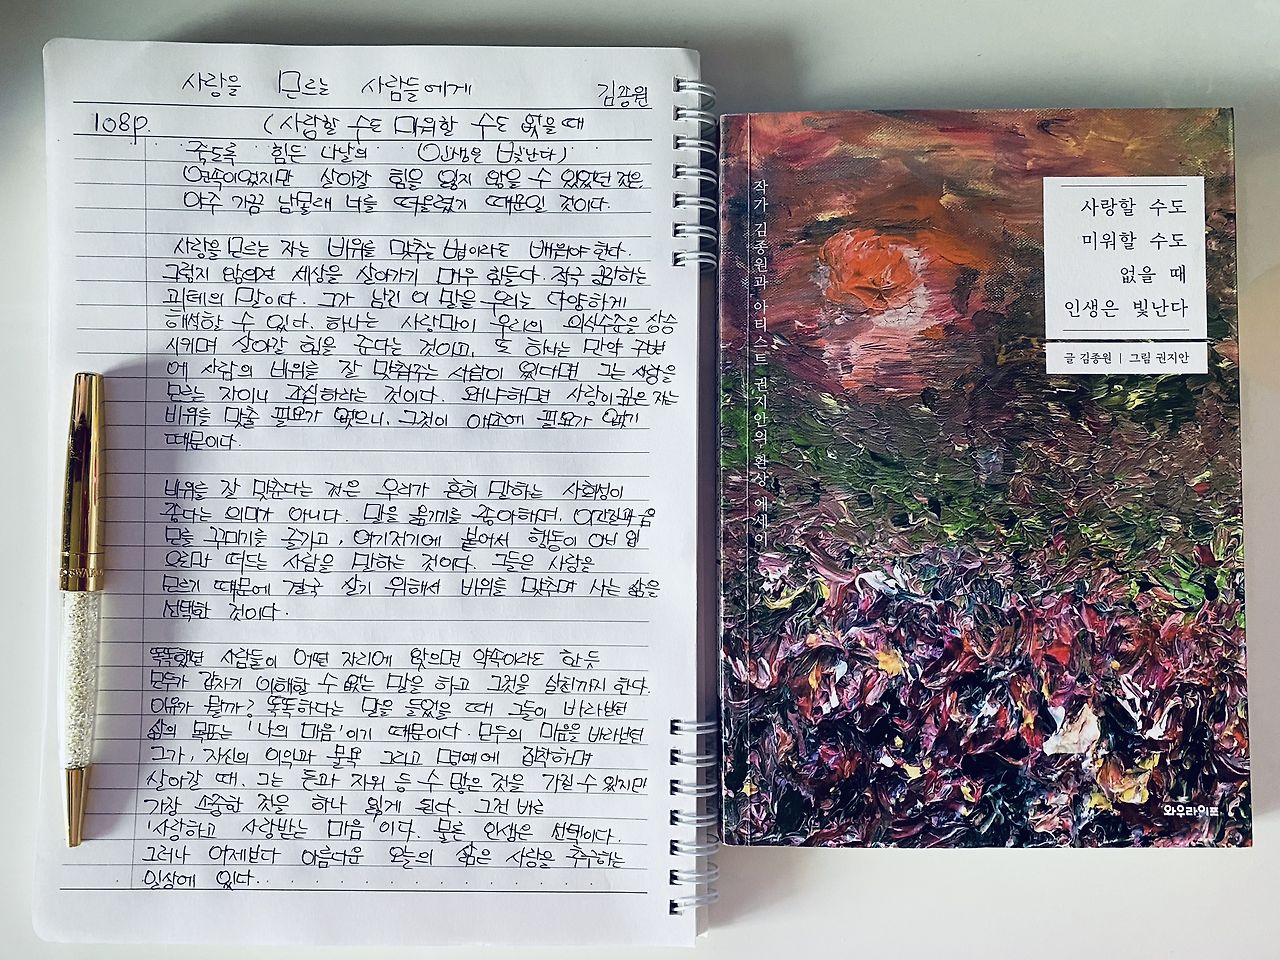 사랑을 모르는 사람들에게
김종원
108p. (사랑할 수도 미워할 수도 없을 때
인생은 빛난다)
죽도록 힘든 나날의
연속이었지만 살아갈 힘을 잃지 않을 수 있었던 것은
아주 가끔 남몰래 너를 떠올렸기 때문인 것이다.
사랑을 모르는 자는 비위를 맞추는 법이라도 배워야 한다.
그렇지 않으면 세상을 살아가기 매우 힘들다. 적극 공감하는
괴테의 말이다. 그가 남긴 이 말을 우리는 다양하게
해석할 수 있다. 하나는 사랑만이 우리의 의식수준을 상승
시키며 살아갈 힘을 준다는 것이고, 또 하나는 만약 주변
에 사람의 비위를 잘 맞춰주는 사람이 있다면 그는 사랑을
모르는 자이니 조심하라는 것이다. 왜냐하면 사랑이 깊은 자는
비위를 맞출 필요가 없으니, 그것이 애초에 필요가 없기
때문이다.
비위를 잘 맞춘다는 것은 우리가 흔히 말하는 사회성이
좋다는 의미가 아니다. 말을 옮기기를 좋아하며, 이간질과 음
모를 꾸미기를 즐기고, 여기저기에 붙어서 행동이 아닌 입
으로만 떠드는 사람을 말하는 것이다. 그들은 사랑을
모르기 때문에 결국 살기 위해서 비위를 맞추며 사는 삶을
선택한 것이다.
똑똑했던 사람들이 어떤 자리에 앉으면 약속이라도 한듯
모두가 갑자기 이해할 수 없는 말을 하고 그것을 실천까지 한다.
이유가 뭘까? 똑똑하다는 말을 들었을 때 그들이 바라보던
삶의 목표는 '나의 마음'이기 때문이다. 모두의 마음을 바라보던
그가, 자신의 이익과 물욕 그리고 명예에 집착하며
살아갈 때, 그는 돈과 지위 등 수 많은 것을 가질 수 있지만
가장 소중한 것을 하나 잃게 된다. 그건 바로
'사랑하고 사랑받는 마음'이다. 물론 인생은 선택이다.
그러나 어제보다 아름다운 오늘의 삶은 사랑을 추구하는
일상에 있다.
SWAR
작가 김종원과 아티스트 권지안의 환상 에세이
사랑할 수도
미워할 수도
없을 때
인생은 빛난다
글 김종원 | 그림 권지안
와우라이프